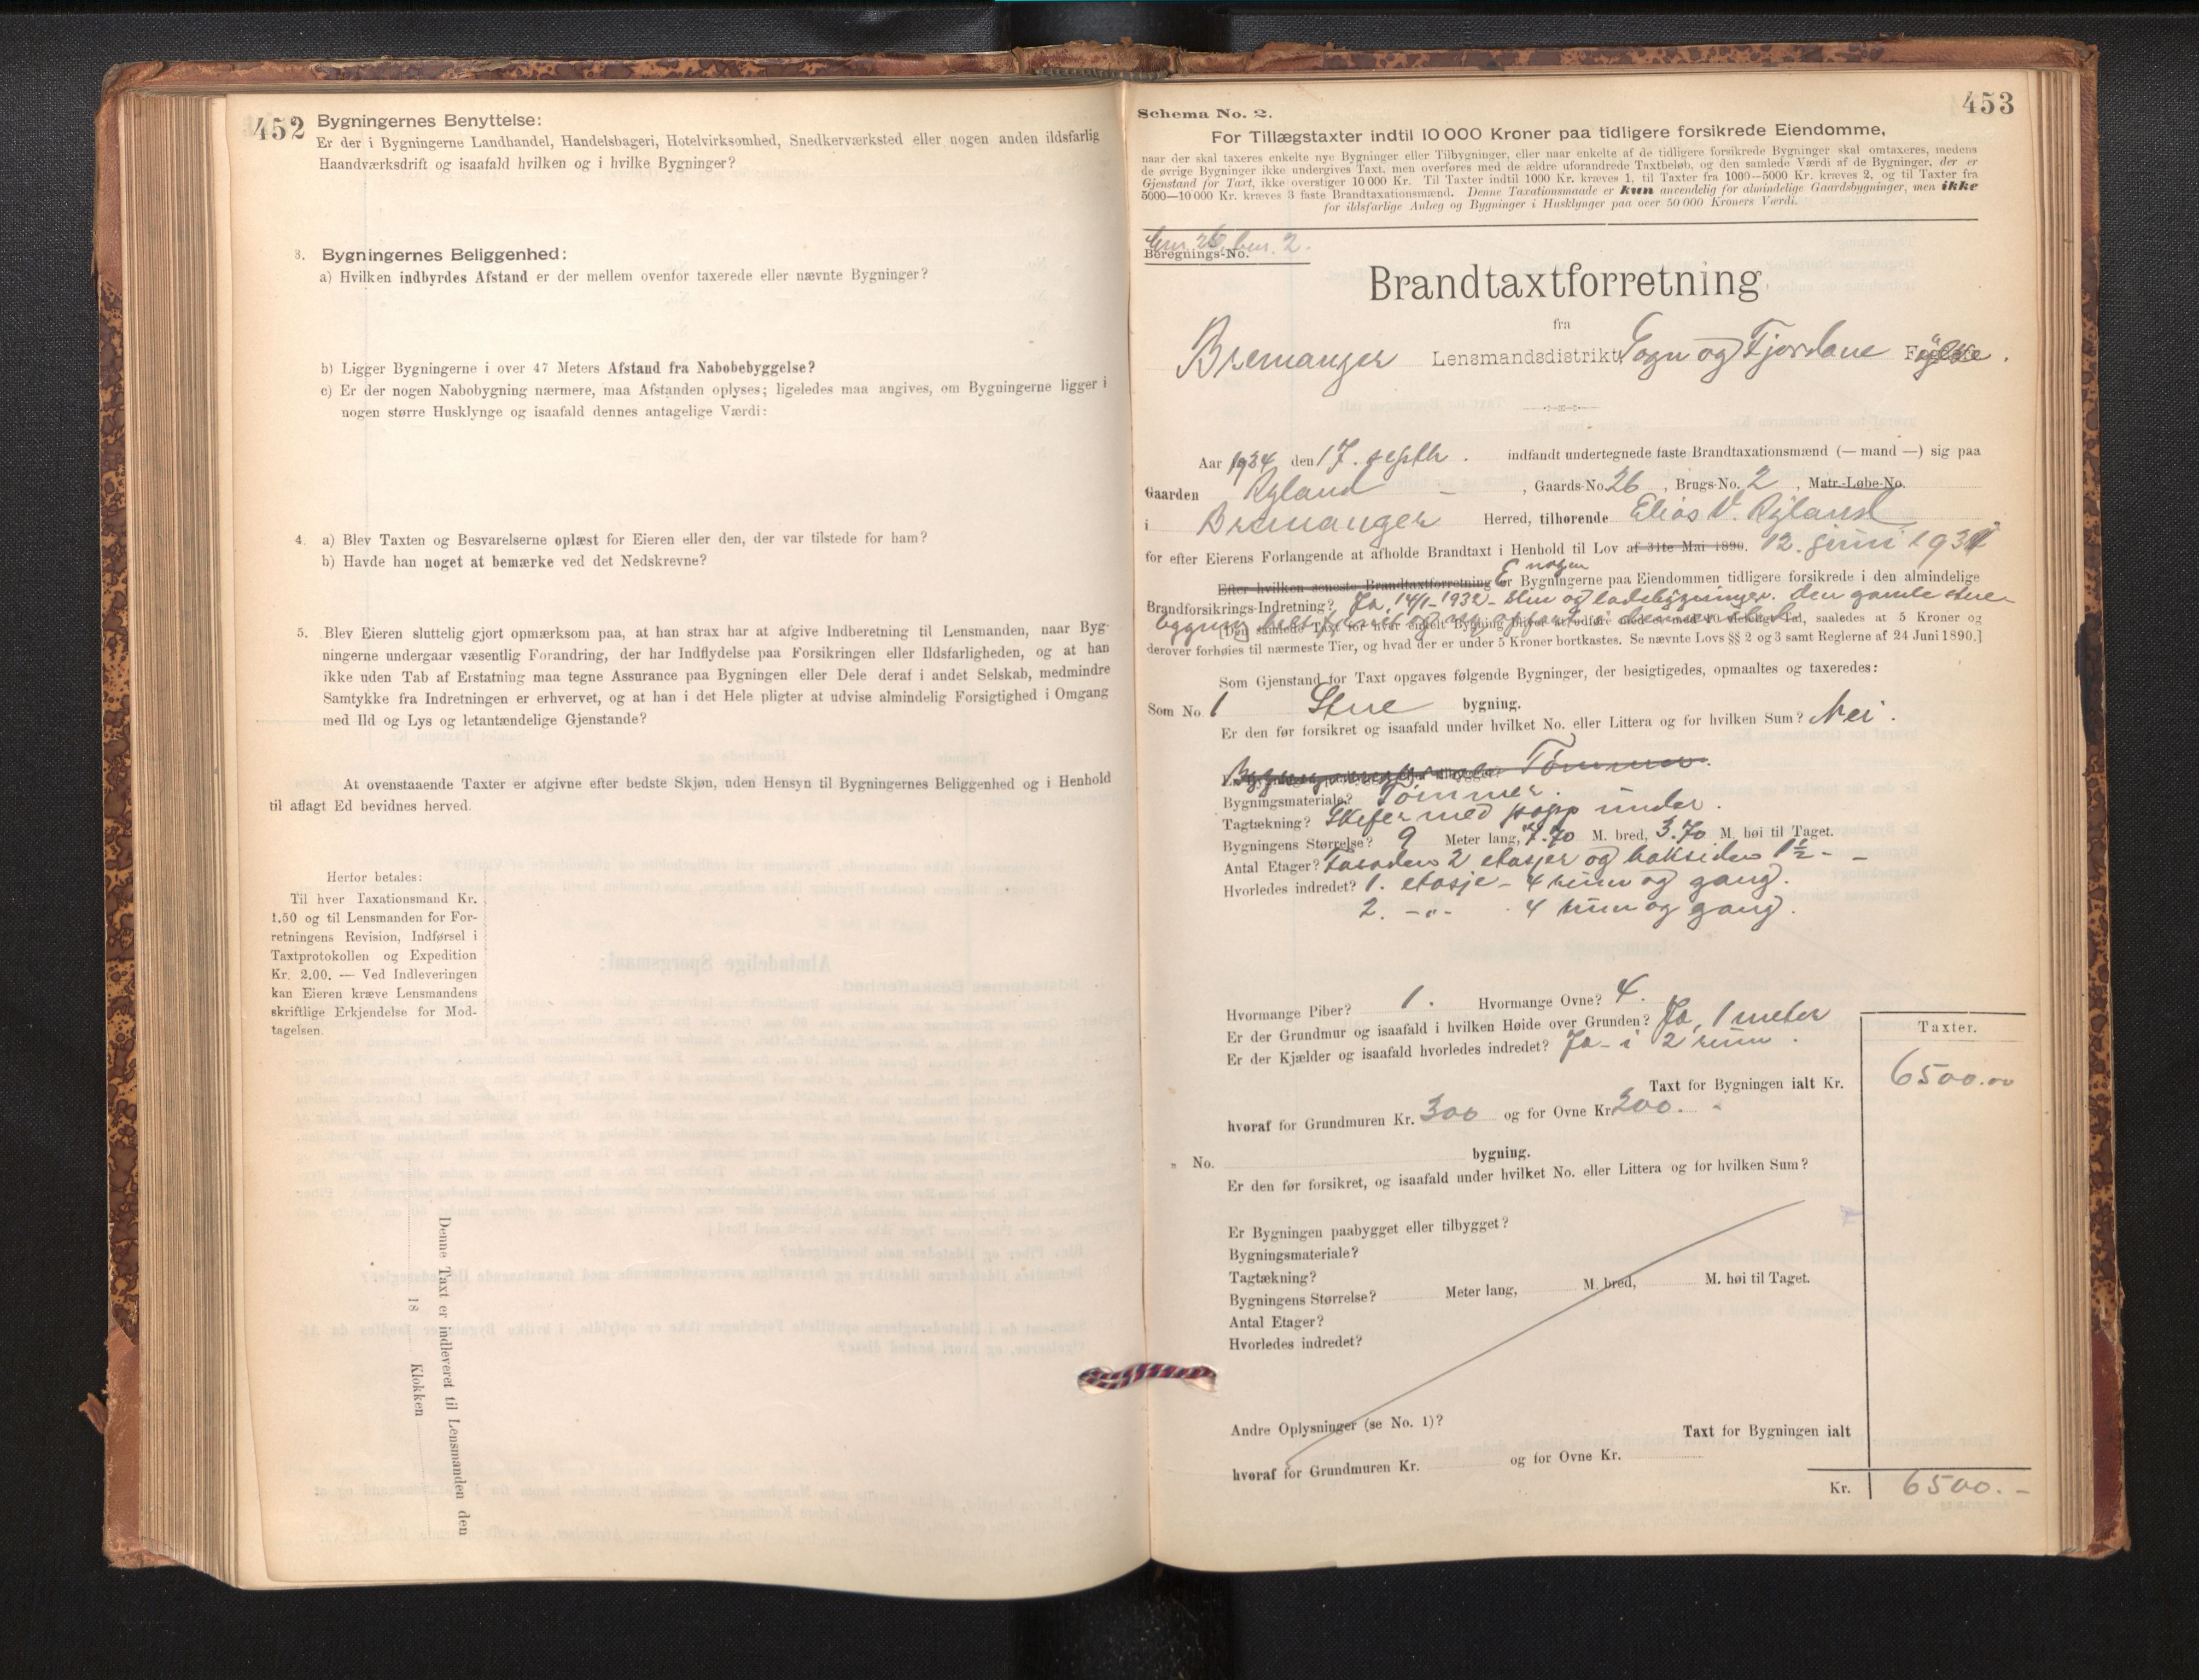 452
Bygningernes Benyttelse:
Er der i Bygningerne Landhandel, Handelsbageri, Hotelvirksomhed, Snedkerværksted eller nogen anden ildsfarlig
Haandværksdrift og isaafald hvilken og i hvilke Bygninger?
3. Bygningernes Beliggenhed:
a) Hvilken indbyrdes Afstand er der mellem ovenfor taxerede eller nævnte Bygninger?
b) Ligger Bygningerne i over 47 Meters Afstand fra Nabobebyggelse?
c) Er der nogen Nabobygning nærmere, maa Afstanden oplyses; ligeledes maa angives, om Bygningerne ligger i
nogen større Husklynge og isaafald dennes antagelige Værdi:
4. a) Blev Taxten og Besvarelserne oplæst for Eieren eller den, der var tilstede for ham?
b) Havde han noget at bemærke ved det Nedskrevne?
5. Blev Eieren sluttelig gjort opmærksom paa, at han strax har at afgive Indberetning til Lensmanden, naar Byg-
ningerne undergaar væsentlig Forandring, der har Indflydelse paa Forsikringen eller Ildsfarligheden, og at han
ikke uden Tab af Erstatning maa tegne Assurance paa Bygningen eller Dele deraf i andet Selskab, medmindre
Samtykke fra Indretningen er erhvervet, og at han i det Hele pligter at udvise almindelig Forsigtighed i Omgang
med Ild og Lys og letantændelige Gjenstande?
At ovenstaaende Taxter er afgivne efter bedste Skjøn, uden Hensyn til Bygningernes Beliggenhed og i Henhold
til aflagt Ed bevidnes herved.
Herfor betales:
Til hver Taxationsmand Kr.
1.50 og til Lensmanden for For-
retningens Revision, Indførsel i
Taxtprotokollen og Expedition
Kr. 2.00. — Ved Indleveringen
kan Eieren kræve Lensmandens
skriftlige Erkjendelse for Mod-
tagelsen.
Denne Taxt er indleveret til Lensmanden den
18 Klokken
453
Schema No. 2.
For Tillægstaxter indtil 10 000 Kroner paa tidligere forsikrede Eiendomme,
naar der skal taxeres enkelte nye Bygninger eller Tilbygninger, eller naar enkelte af de tidligere forsikrede Bygninger skal omtaxeres, medens
de øvrige Bygninger ikke undergives Taxt, men overføres med de ældre uforandrede Taxtbeløb, og den samlede Værdi af de Bygninger, der er
Gjenstand for Taxt, ikke overstiger 10 000 Kr. Til Taxter indtil 1000 Kr. kræves 1, til Taxter fra 1000—5000 Kr. kræves 2, og til Taxter fra
5000—10 000 Kr. kræves 3 faste Brandtaxationsmænd. Denne Taxationsmaade er kun anvendelig for almindelige Gaardsbygninger, men ikke
for ildsfarlige Anlæg og Bygninger i Husklynger paa over 50 000 Kroners Værdi.
Gnr. 26, bnr. 2.
Beregnings-No.
Brandtaxtforretning
fra
Bremanger Lensmandsdistrikt, Sogn og Fjordane Fylke.
Aar 1934 den 17. septbr. indfandt undertegnede faste Brandtaxationsmænd (— mand —) sig paa
Gaarden Ryland , Gaards-No. 26 , Brugs-No. 2 , Matr.-Løbe-No.
i Bremanger Herred, tilhørende Elias V. Ryland
for efter Eierens Forlangende at afholde Brandtaxt i Henhold til Lov af 31te Mai 1890. 12. juni 1931
Efter hvilken seneste Brandtaxtforretning er Er nogen Bygningerne paa Eiendommen tidligere forsikrede i den almindelige
Brandforsikrings-Indretning? Ja, 14/1-1932 - stue og ladebygninger. Den gamle stue-
bygning
[Den samlede Taxt for hver enkelt Bygning bliver at udføre med et med 10 deleligt Tal, saaledes at 5 Kroner og
derover forhøies til nærmeste Tier, og hvad der er under 5 Kroner bortkastes. Se nævnte Lovs §§ 2 og 3 samt Reglerne af 24 Juni 1890.]
Som Gjenstand for Taxt opgaves følgende Bygninger, der besigtigedes, opmaaltes og taxeredes:
Som No. 1 Stue bygning.
Er den før forsikret og isaafald under hvilket No. eller Littera og for hvilken Sum? Nei.
Tømmer.
Bygningsmateriale? Tømmer.
Tagtækning? Skifer med papp under.
Bygningens Størrelse? 9 Meter lang, 7.70 M. bred, 3.70 M. høi til Taget.
Antal Etager? Fasaden 2 etasjer og baksiden 1½ - -
Hvorledes indredet? 1. etasje - 4 rum og gang.
2. -"- 4 rum og gang.
Hvormange Piber? 1. Hvormange Ovne? 4.
Er der Grundmur og isaafald i hvilken Høide over Grunden? Ja, 1 meter
Er der Kjælder og isaafald hvorledes indredet? Ja - i 2 rum.
Taxter.
Taxt for Bygningen ialt Kr. 6500.00
hvoraf for Grundmuren Kr. 300 og for Ovne Kr. 200.
„ No. bygning.
Er den før forsikret, og isaafald under hvilket No. eller Littera og for hvilken Sum?
Er Bygningen paabygget eller tilbygget?
Bygningsmateriale?
Tagtækning?
Bygningens Størrelse? Meter lang, M. bred, M. høi til Taget.
Antal Etager?
Hvorledes indredet?
Andre Oplysninger (se No. 1)?
Taxt for Bygningen ialt
hvoraf for Grundmuren Kr. og for Ovne Kr.
Kr. 6500.-